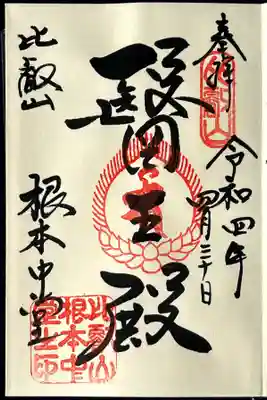 奉拝
令和四年
四月三十日
醫王殿
比叡山
根本中堂
比叡山
根本中
堂之印